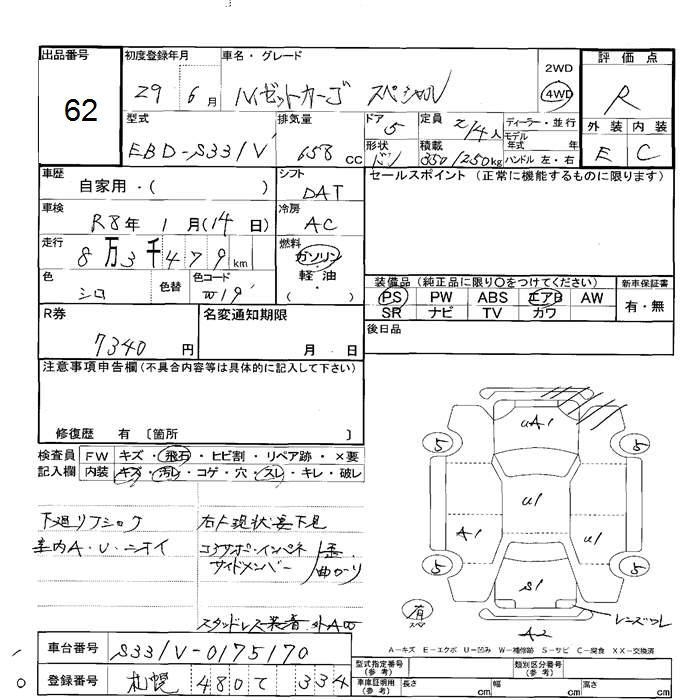 出品番号
62
初度登録年月
29 6月
車名・グレード
ハイゼットカーゴ スペシャル
2WD
4WD
評価点
R
外装 内装
E C
型式
EBD-S331V
排気量
658 CC
ドア
5
形状
バン
定員 2/4人
積載
350/250kg
ディーラー・並行
モデル
年式 年
ハンドル 左・右
車歴
自家用・( )
シフト
DAT
セールスポイント (正常に機能するものに限ります)
車検
R8年 1月(14日)
冷房
AC
走行
8万3千479km
燃料
ガソリン
軽油
( )
色
シロ
色替
色コード
W19
装備品 (純正品に限り〇をつけてください)
PS PW ABS エアB AW
SR ナビ TV カワ
新車保証書
有・無
R券
7340円
名変通知期限
月 日
後日品
注意事項申告欄(不具合内容等は具体的に記入して下さい)
修復歴 有 〔箇所 〕
検査員
記入欄
FW キズ・飛石・ヒビ割・リペア跡・×要
内装 キズ・汚レ・コゲ・穴・スレ・キレ・破レ
下廻りフショク
室内A・U・ニオイ
右F現状要下見
コアサポ・インパネ
サイドメンバー
曲がり
スタッドレス装着 外AW
UA1
5
5
U1
A1
U1
5
5
S1
有
スペ
レンズワレ
A2
A－キズ E－エクボ U－凹み W－補修跡 S－サビ C－腐食 XX－交換済
車台番号
S331V-0175170
登録番号
札幌 480て 334
型式指定番号
(参考)
類別区分番号
(参考)
車庫証明用
(参考)
長さ cm 幅 cm 高さ cm